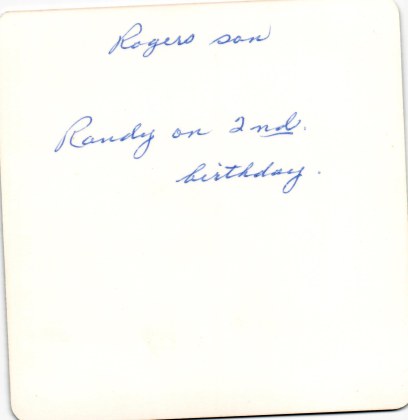 Rogers son
Randy on 2nd.
birthday.